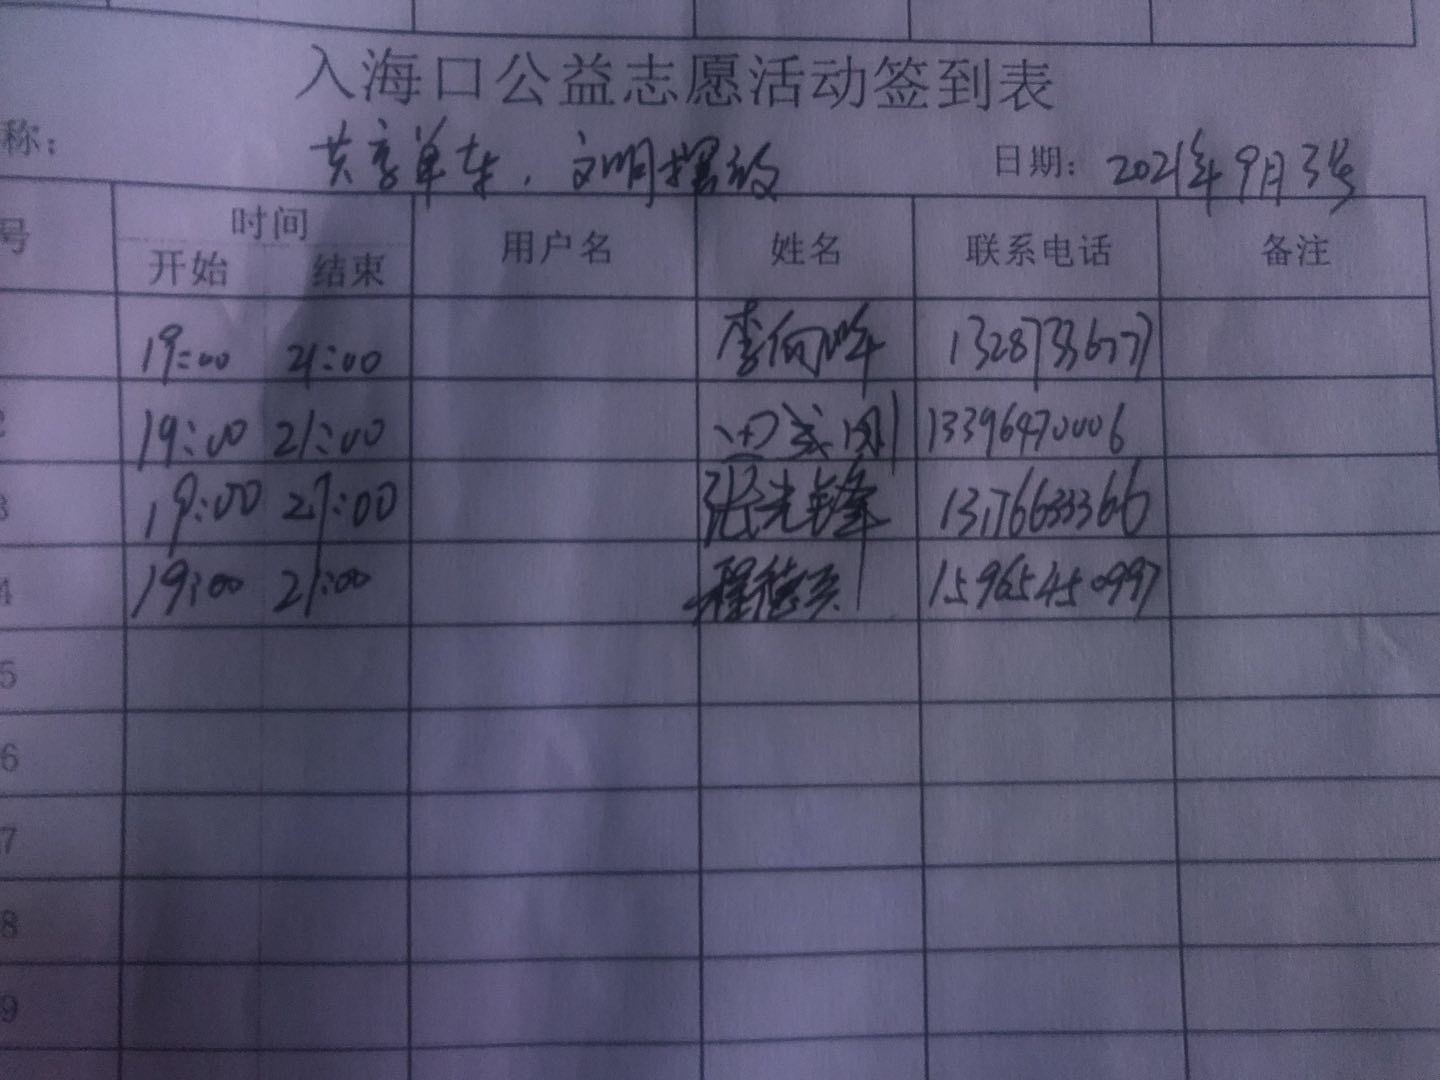 入海口公益志愿活动签到表
称: 共享单车,文明摆放 日期: 2021年9月3号
号 时间 用户名 姓名 联系电话 备注
开始 结束
19:00 21:00 李向晖 13287336777
2 19:00 21:00 13396470006
3 19:00 21:00 张光锋 13176633366
4 19:00 21:00 程德 15965450997
5
6
7
8
9